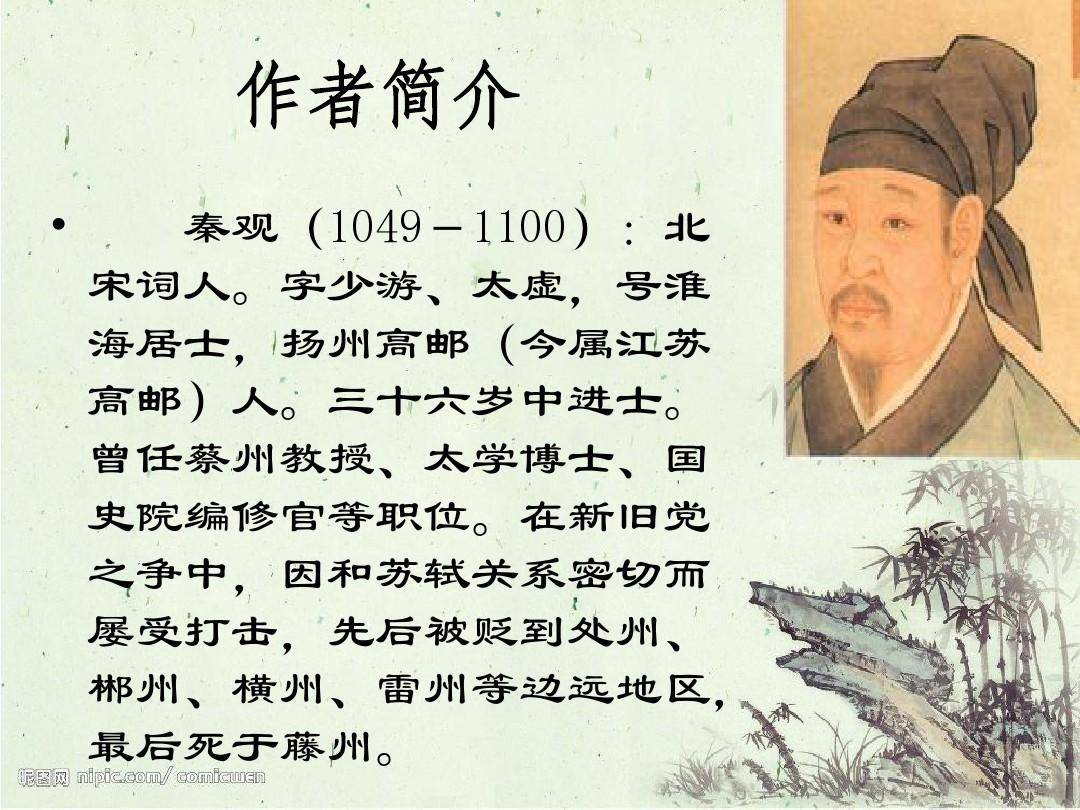 作者简介
• 秦观（1049－1100）：北
宋词人。字少游、太虚，号淮
海居士，扬州高邮（今属江苏
高邮）人。三十六岁中进士。
曾任蔡州教授、太学博士、国
史院编修官等职位。在新旧党
之争中，因和苏轼关系密切而
屡受打击，先后被贬到处州、
郴州、横州、雷州等边远地区，
最后死于藤州。
昵图网 nipic.com/comicwen